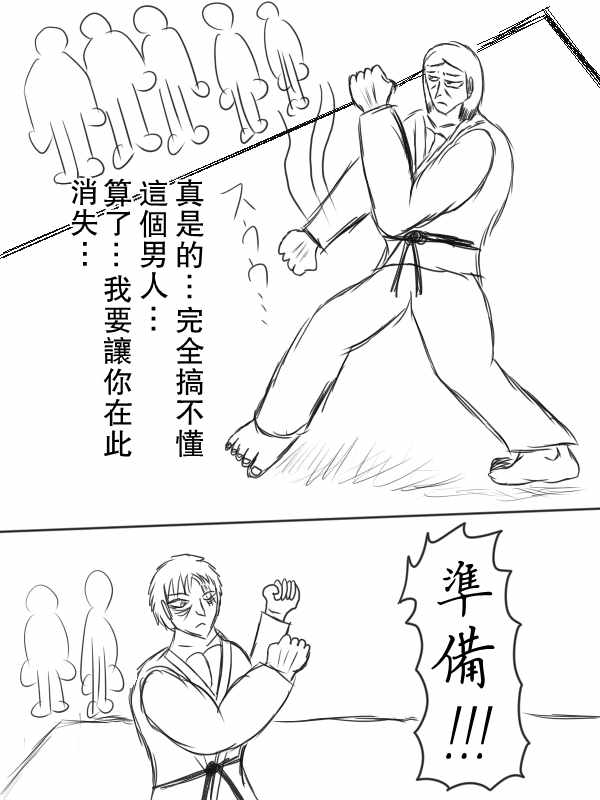 真是的…完全搞不懂
這個男人…
算了…我要讓你在此
消失…
スウウ…
準備!!!